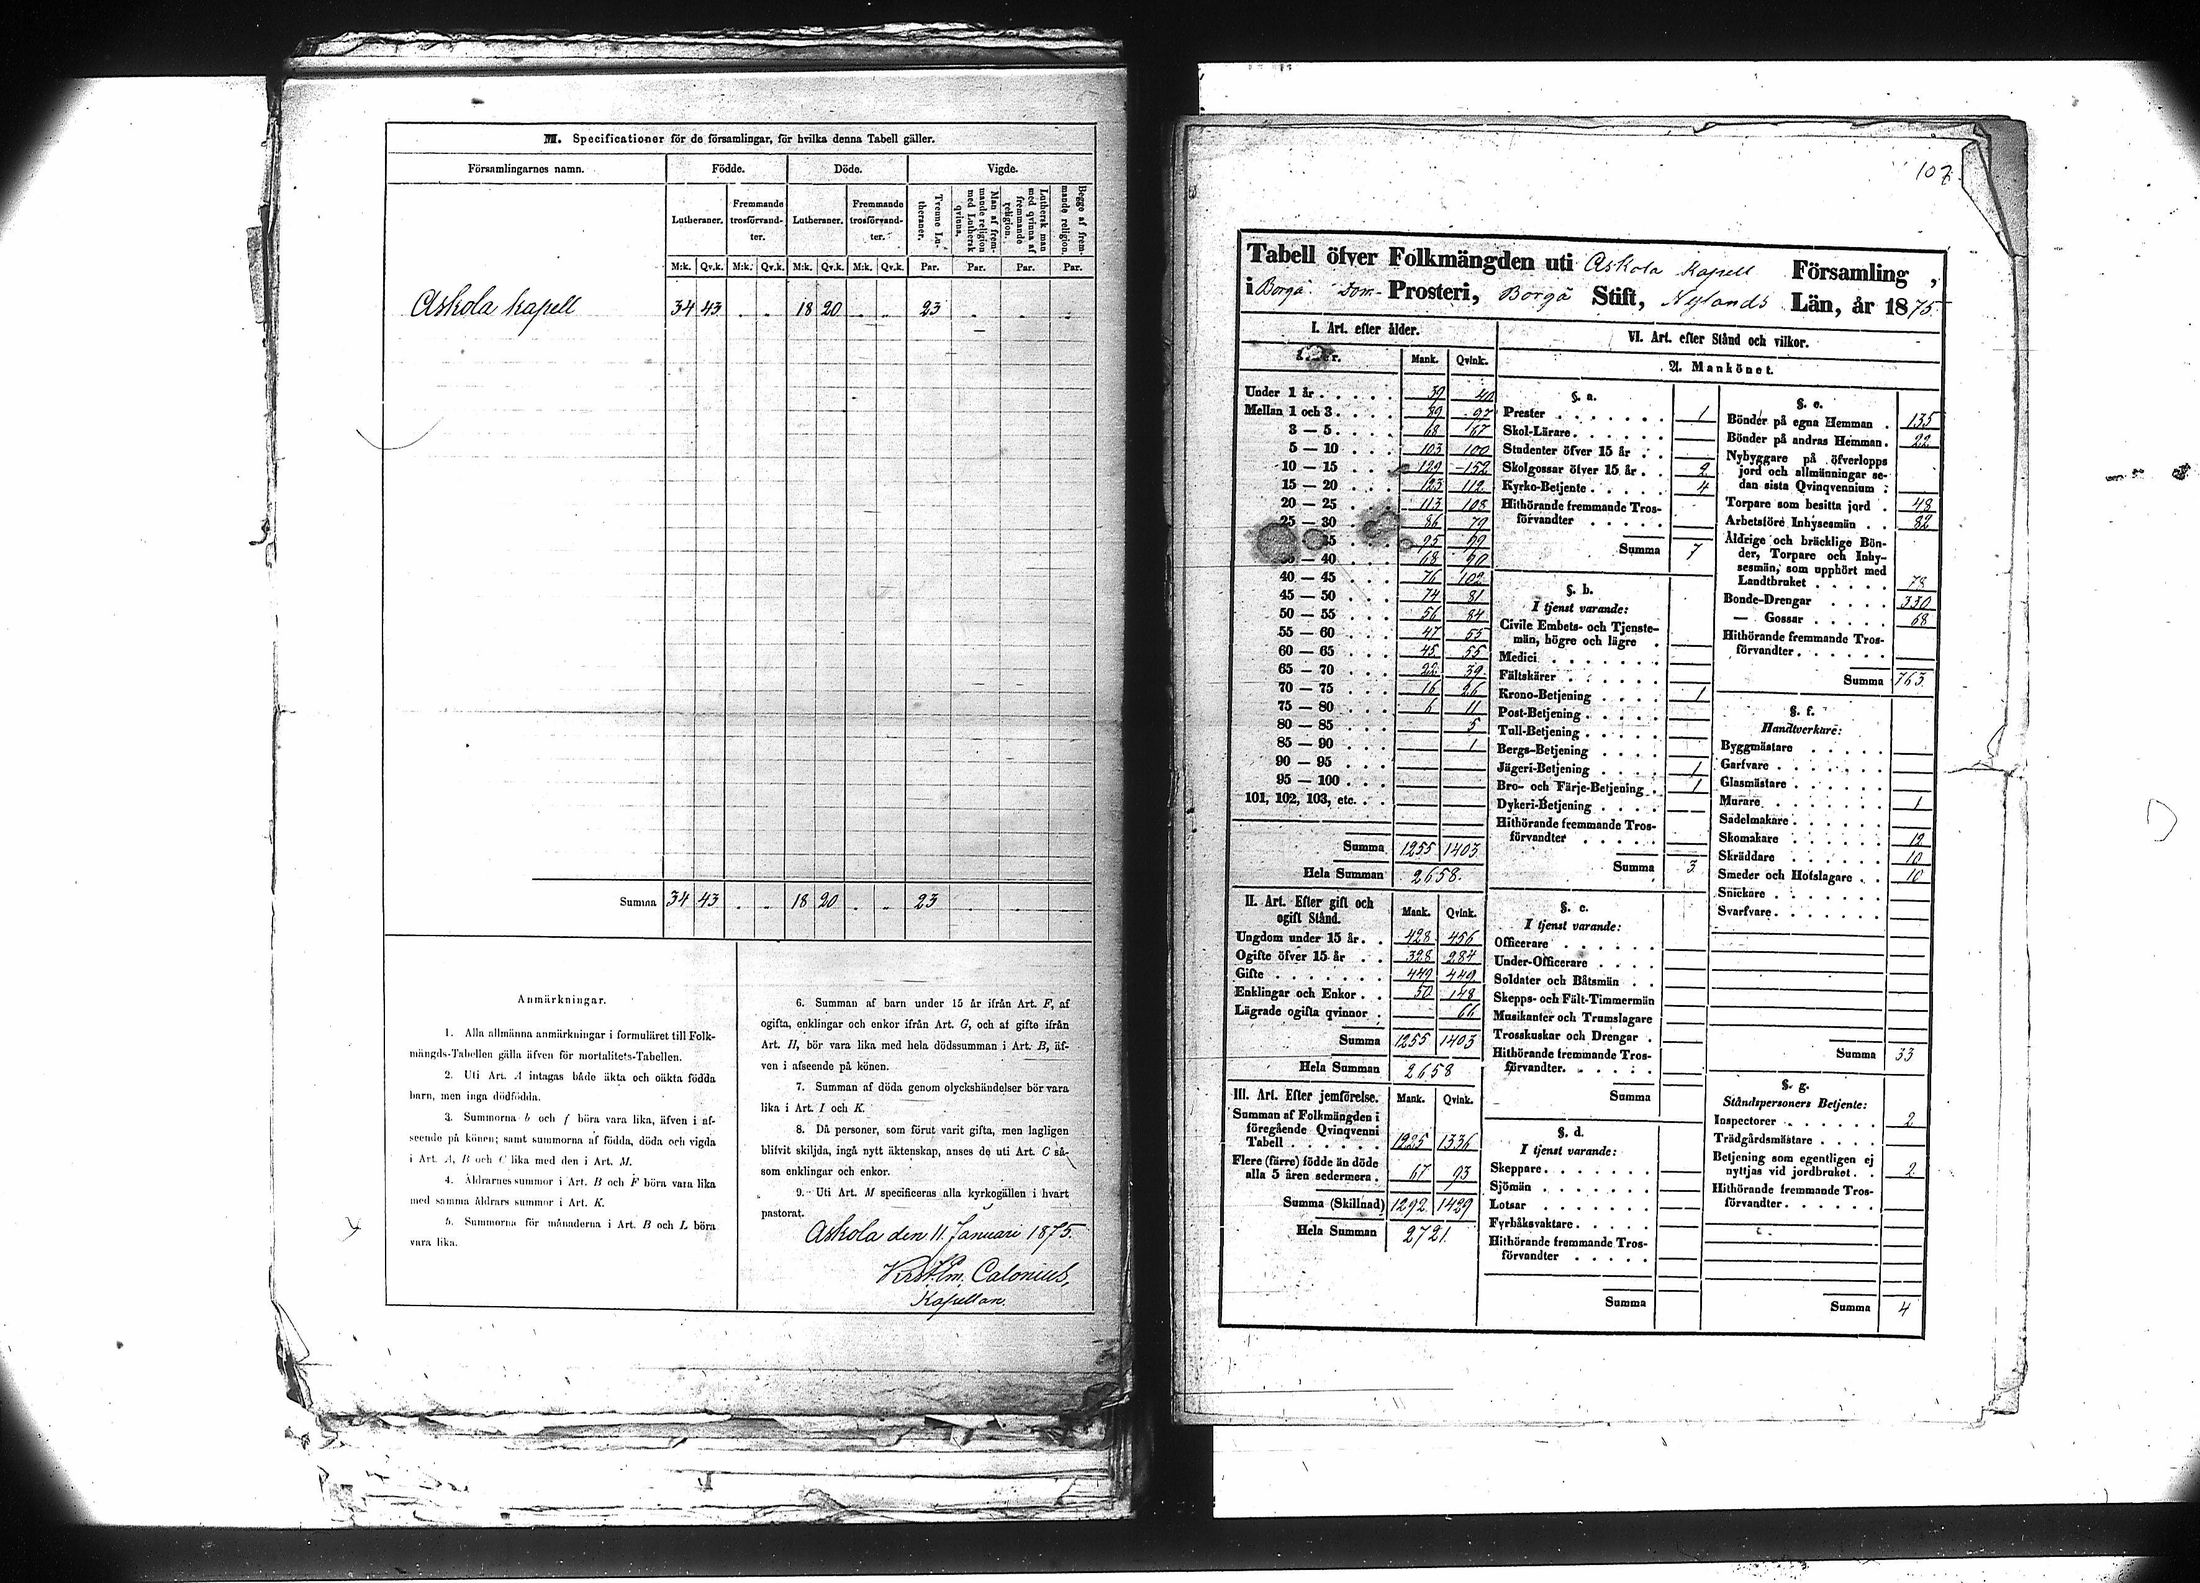 M. Specificationer för de församlingar, för hvilka denna Tabell gäller.
Församlingarnes namn. Födde. Döde. Vigde.
Lutheraner. Fremmande trosförvandter. Lutheraner. Fremmande trosförvandter. Tvenne Lutheraner. Man af fremmande religion med Luthersk qvinna. Luthersk man med qvinna af fremmande religion. Begge af fremmande religion.
M:k. Qv.k. M:k. Qv.k. M:k. Qv.k. M:k. Qv.k. Par. Par. Par. Par.
Askola kapell 34 43 18 20 23
Summa 34 43 18 20 23
Anmärkningar.
1. Alla allmänna anmärkningar i formuläret till Folk-
mängds-Tabellen gälla äfven för mortalitets-Tabellen.
2. Uti Art. A intagas både äkta och oäkta födda
barn, men inga dödfödda.
3. Summorna b och f böra vara lika, äfven i af-
seende på könen; samt summorna af födda, döda och vigda
i Art. A, B och C lika med den i Art. M.
4. Åldrarnes summor i Art. B och F böra vara lika
med samma åldrars summor i Art. K.
5. Summorna för månaderna i Art. B och L böra
vara lika.
6. Summan af barn under 15 år ifrån Art. F, af
ogifta, enklingar och enkor ifrån Art. G, och af gifte ifrån
Art. H, bör vara lika med hela dödssumman i Art. B, äf-
ven i afseende på könen.
7. Summan af döda genom olyckshändelser bör vara
lika i Art. I och K.
8. Då personer, som förut varit gifta, men lagligen
blifvit skiljda, ingå nytt äktenskap, anses de uti Art. C så-
som enklingar och enkor.
9. Uti Art. M specificeras alla kyrkogällen i hvart
pastorat.
Askola den 11. Januari 1875.
Calonius,
Kapellan.
107.
Tabell öfver Folkmängden uti Askola Kapell Församling,
i Borgå Dom- Prosteri, Borgå Stift, Nylands Län, år 1875.
I. Art. efter ålder.
Mank. Qvink.
Under 1 år 39 40
Mellan 1 och 3 89 97
3 — 5 68 67
5 — 10 103 100
10 — 15 129 152
15 — 20 123 112
20 — 25 113 108
25 — 30 86 79
35 95 99
— 40 68 90
40 — 45 76 102
45 — 50 74 81
50 — 55 56 84
55 — 60 47 55
60 — 65 45 55
65 — 70 22 39
70 — 75 16 26
75 — 80 6 11
80 — 85 5
85 — 90 1
90 — 95
95 — 100
101, 102, 103, etc.
Summa 1255 1403
Hela Summan 2658.
II. Art. Efter gift och ogift Stånd. Mank. Qvink.
Ungdom under 15 år 428 456
Ogifte öfver 15 år 328 284
Gifte 449 449
Enklingar och Enkor 50 148
Lägrade ogifta qvinnor 66
Summa 1255 1403
Hela Summan 2658
III. Art. Efter jemförelse. Mank. Qvink.
Summan af Folkmängden i
föregående Qvinqvenni
Tabell 1225 1336
Flere (färre) födde än döde
alla 5 åren sedermera 67 93
Summa (Skillnad) 1292 1429
Hela Summan 2721.
VI. Art. efter Stånd och vilkor.
A. Mankönet.
§. a.
Prester 1
Skol-Lärare
Studenter öfver 15 år
Skolgossar öfver 15 år 2
Kyrko-Betjente 4
Hithörande fremmande Tros-
förvandter
Summa 7
§. b.
I tjenst varande:
Civile Embets- och Tjenste-
män, högre och lägre
Medici
Fältskärer
Krono-Betjening 1
Post-Betjening
Tull-Betjening
Bergs-Betjening
Jägeri-Betjening 1
Bro- och Färje-Betjening 1
Dykeri-Betjening
Hithörande fremmande Tros-
förvandter
Summa 3
§. c.
I tjenst varande:
Officerare
Under-Officerare
Soldater och Båtsmän
Skepps- och Fält-Timmermän
Musikanter och Trumslagare
Trosskuskar och Drengar
Hithörande fremmande Tros-
förvandter.
Summa
§. d.
I tjenst varande:
Skeppare
Sjömän
Lotsar
Fyrbåksvaktare
Hithörande fremmande Tros-
förvandter
Summa
§. e.
Bönder på egna Hemman 135
Bönder på andras Hemman 22
Nybyggare på öfverlopps
jord och allmänningar se-
dan sista Qvinqvennium
Torpare som besitta jord 48
Arbetsföre Inhysesmän 82
Åldrige och bräcklige Bön-
der, Torpare och Inhy-
sesmän, som upphört med
Landtbruket 78
Bonde-Drengar 330
— Gossar 68
Hithörande fremmande Tros-
förvandter
Summa 763.
§. f.
Handtverkare:
Byggmästare
Garfvare
Glasmästare
Murare 1
Sadelmakare
Skomakare 12
Skräddare 10
Smeder och Hofslagare 10
Snickare
Svarfvare
Summa 33
§. g.
Ståndspersoners Betjente:
Inspectorer 2
Trädgårdsmästare
Betjening som egentligen ej
nyttjas vid jordbruket 2
Hithörande fremmande Tros-
förvandter
Summa 4